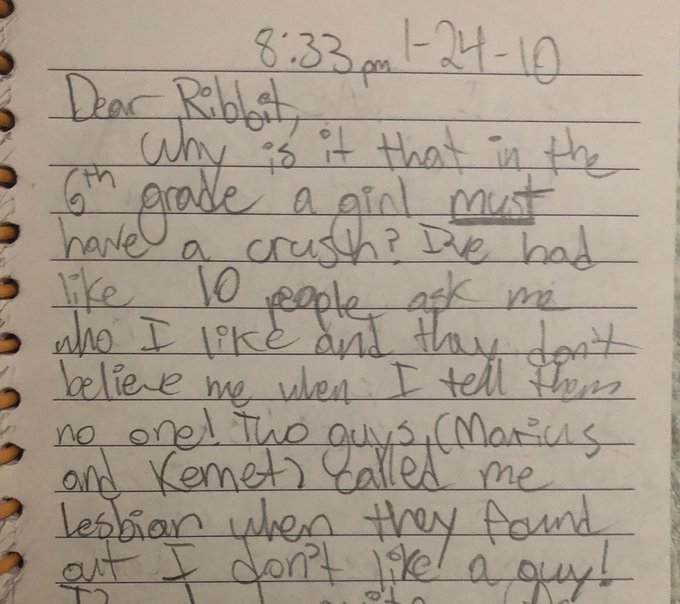 8:33pm 1-24-10
Dear Ribbit,
Why is it that in the
6th grade a girl must
have a crush? I've had
like 10 people ask me
who I like and they don't
believe me when I tell them
no one! Two guys, (Marius
and Kemet) called me
lesbian when they found
out I don't like a guy!